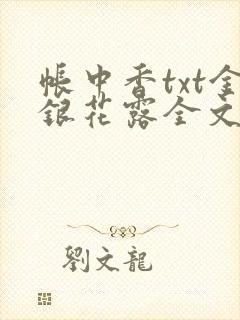 帳中香txt金
銀花露全文
劉文龍